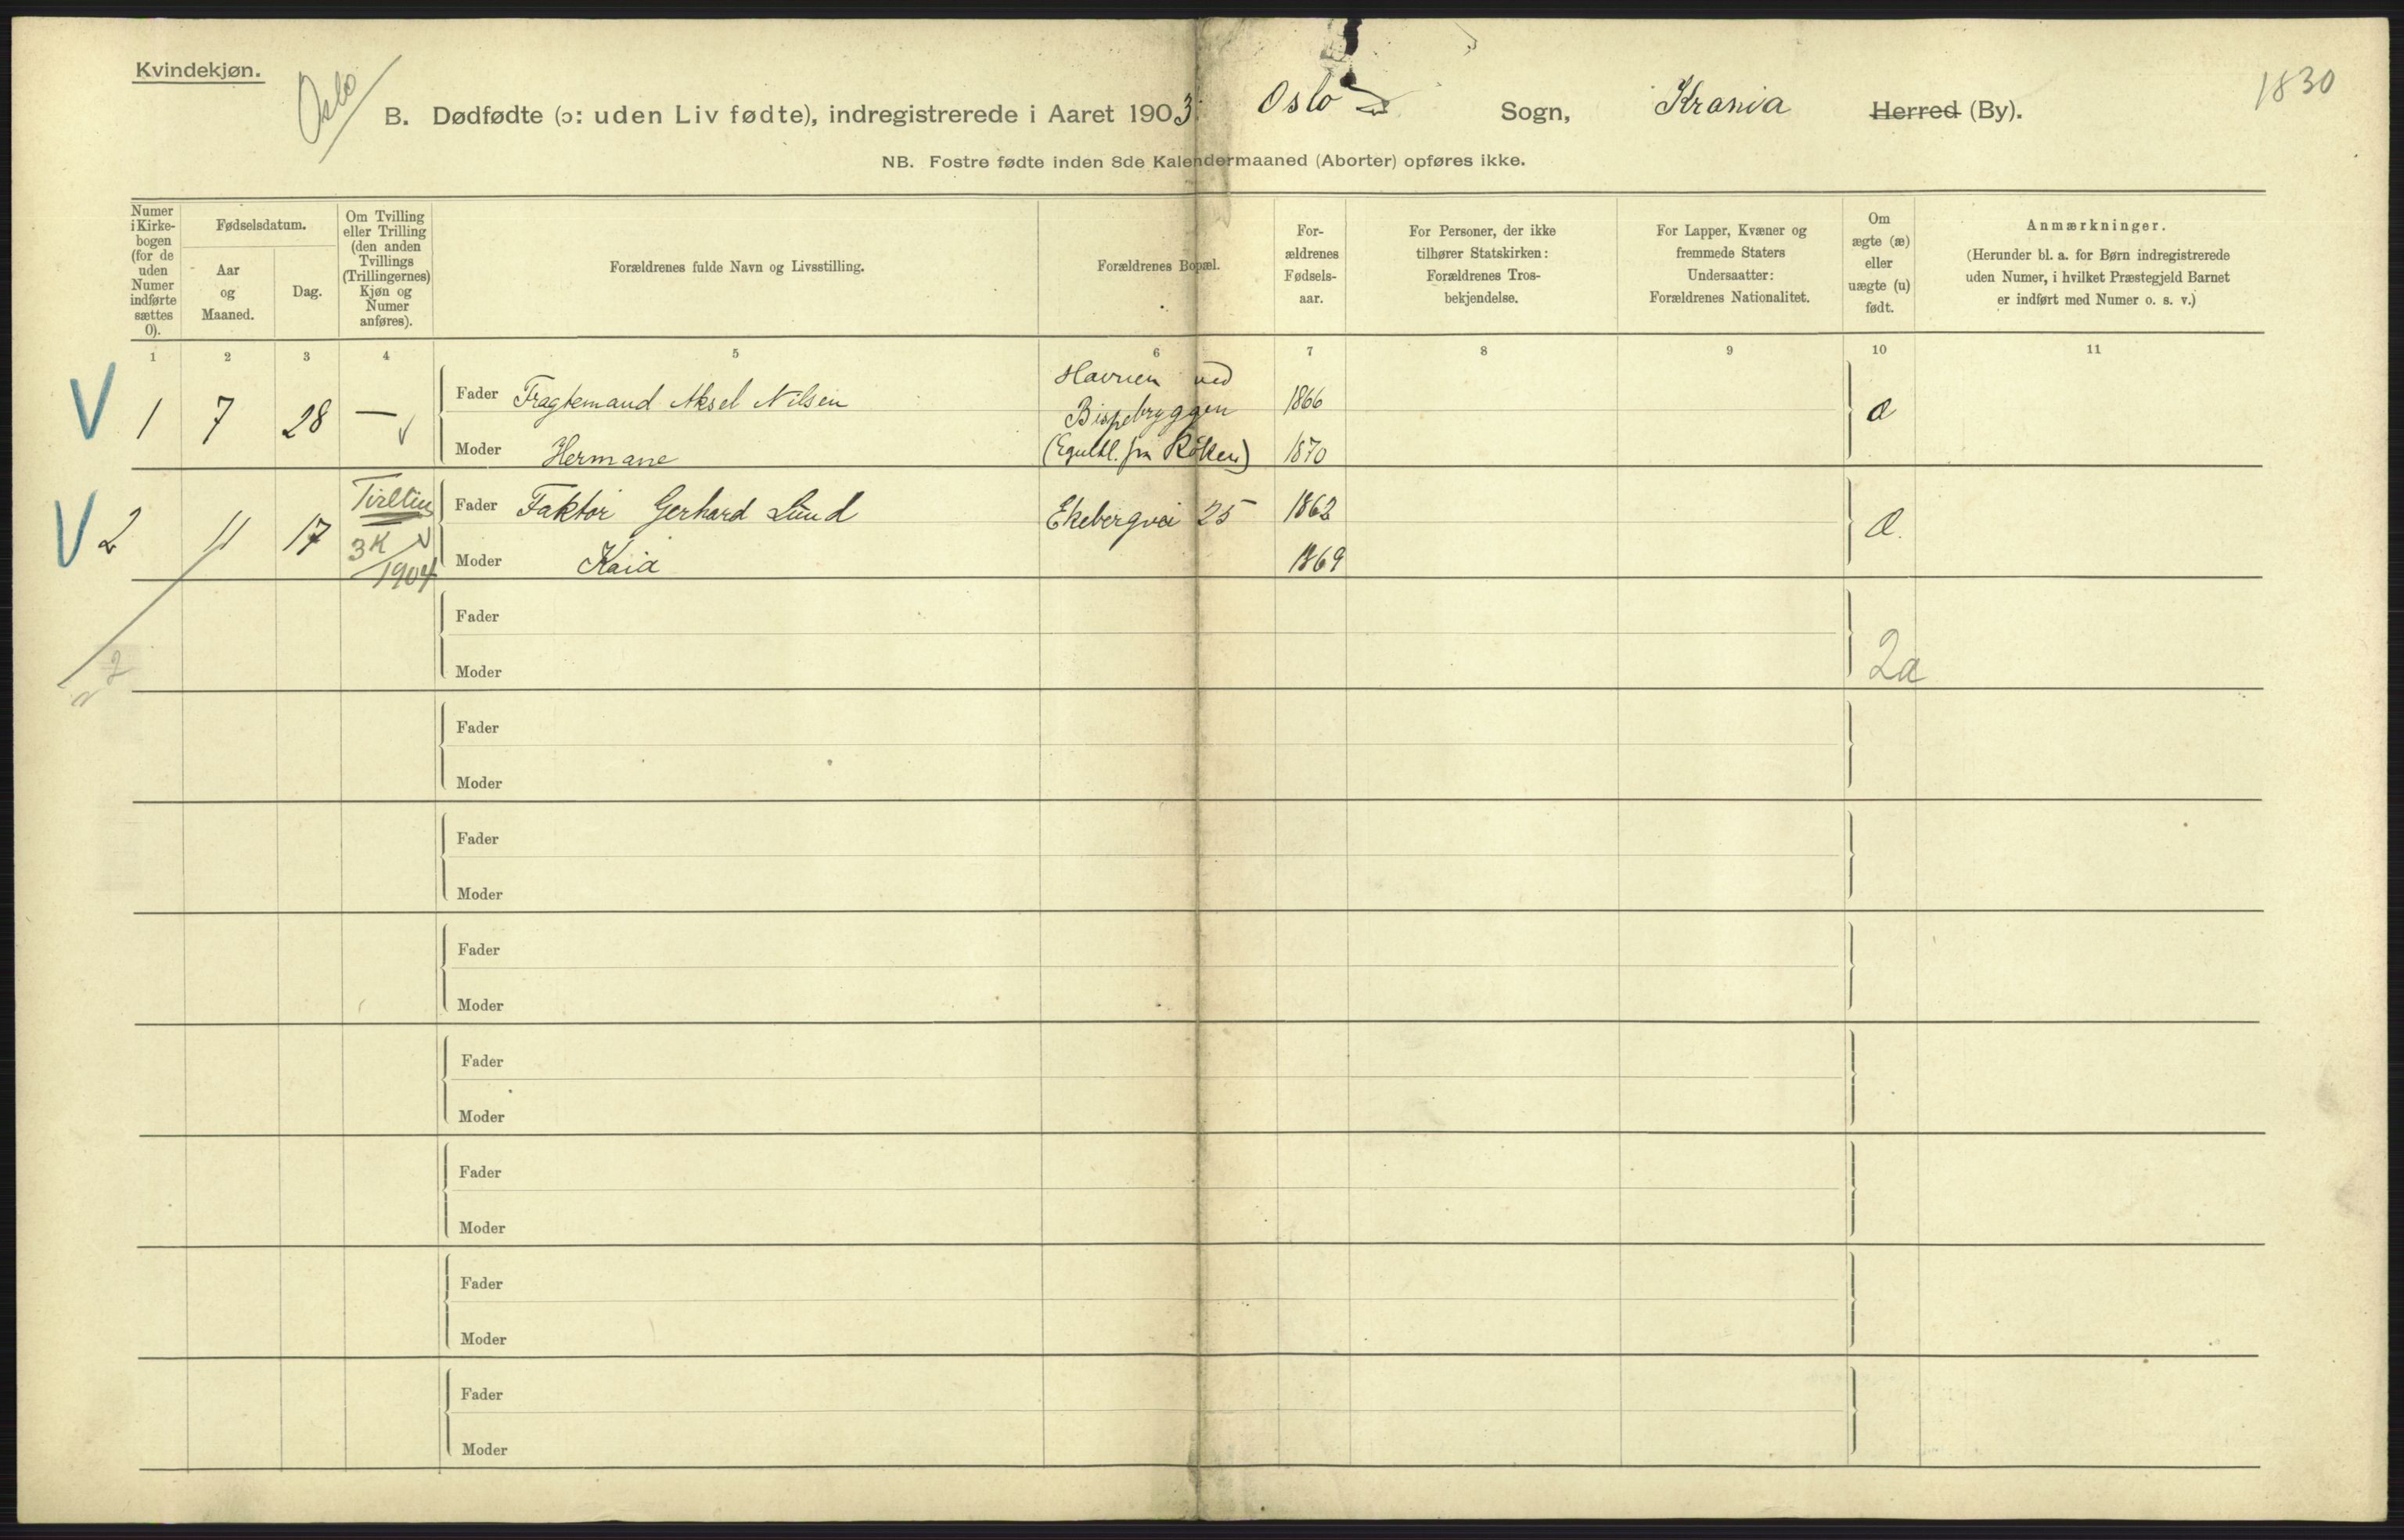 Kvindekjøn.
Oslo
1830
B. Dødfødte (ɔ: uden Liv fødte), indregistrerede i Aaret 1903. Oslo Sogn, Krania Herred (By).
NB. Fostre fødte inden 8de Kalendermaaned (Aborter) opføres ikke.
Numer
i Kirke-
bogen
(for de
uden
Numer
indførte
sættes
0).
Fødselsdatum.
Aar
og
Maaned.
Dag.
Om Tvilling
eller Trilling
(den anden
Tvillings
(Trillingernes)
Kjøn og
Numer
anføres).
Forældrenes fulde Navn og Livsstilling.
Forældrenes Bopæl.
For-
ældrenes
Fødsels-
aar.
For Personer, der ikke
tilhører Statskirken:
Forældrenes Tros-
bekjendelse.
For Lapper, Kvæner og
fremmede Staters
Undersaatter:
Forældrenes Nationalitet.
Om
ægte (æ)
eller
uægte (u)
født.
Anmærkninger.
(Herunder bl. a. for Børn indregistrerede
uden Numer, i hvilket Præstegjeld Barnet
er indført med Numer o. s. v.)
1 2 3 4 5 6 7 8 9 10 11
V 1 7 28 — Fader Fragtemand Aksel Nilsen Havnen ved Bispebryggen 1866 æ
Moder Hermane (Egultl. fra Röken) 1870
V 2 11 17 Fader Faktor Gerhard Lund Ekebergvei 25 1862 æ.
3K
1904
Moder Kaia 1869
Fader
Moder
2æ
2
Fader
Moder
Fader
Moder
Fader
Moder
Fader
Moder
Fader
Moder
Fader
Moder
Fader
Moder